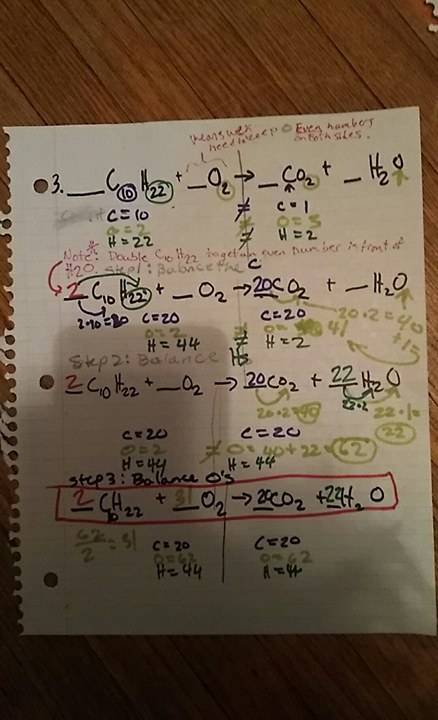 means we need to keep O Even numbers on both sides.
3. __ C10 H22 + __ O2 → __ CO2 + __ H2O
C = 10 ≠ C = 1
O = 2 ≠ O = 3
H = 22 ≠ H = 2
Note: Double C10 H22 to get an even number in front of
H2O. Step 1: Balance the C
2 C10 H22 + __ O2 → 20CO2 + __ H2O
2·10=20 C=20 C=20 20·2=40
O=2 ≠ O= 41 +1=
H=44 ≠ H=2
Step 2: Balance H's
2 C10 H22 + __ O2 → 20CO2 + 22 H2O
20·2=40 22·2 22·1=
C=20 C=20 22
O=2 ≠ O=40+22=62
H=44 H=44
Step 3: Balance O's
2 C10H22 + 31 O2 → 20CO2 + 22H2O
62/2=31 C=20 C=20
O=62 O=62
H=44 H=44